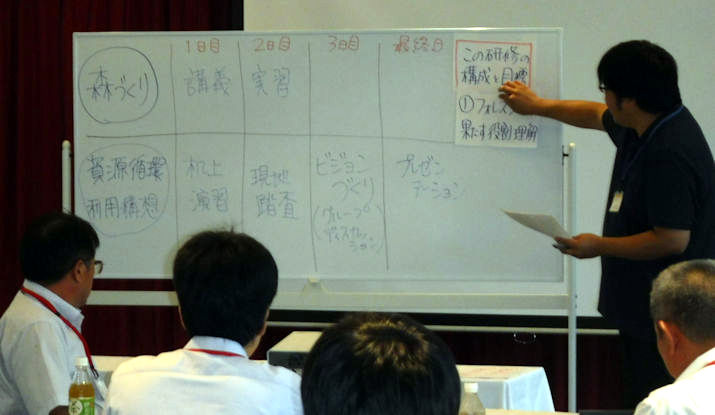 1日目 2日目 3日目 最終日
森づくり 講義 実習
資源循環
利用構想
机上
演習
現地
踏査
ビジョン
づくり
(グループ
ディスカッ
ション)
プレゼン
テーション
この研修の
構成と目標
①フォレス
果たす役割理解